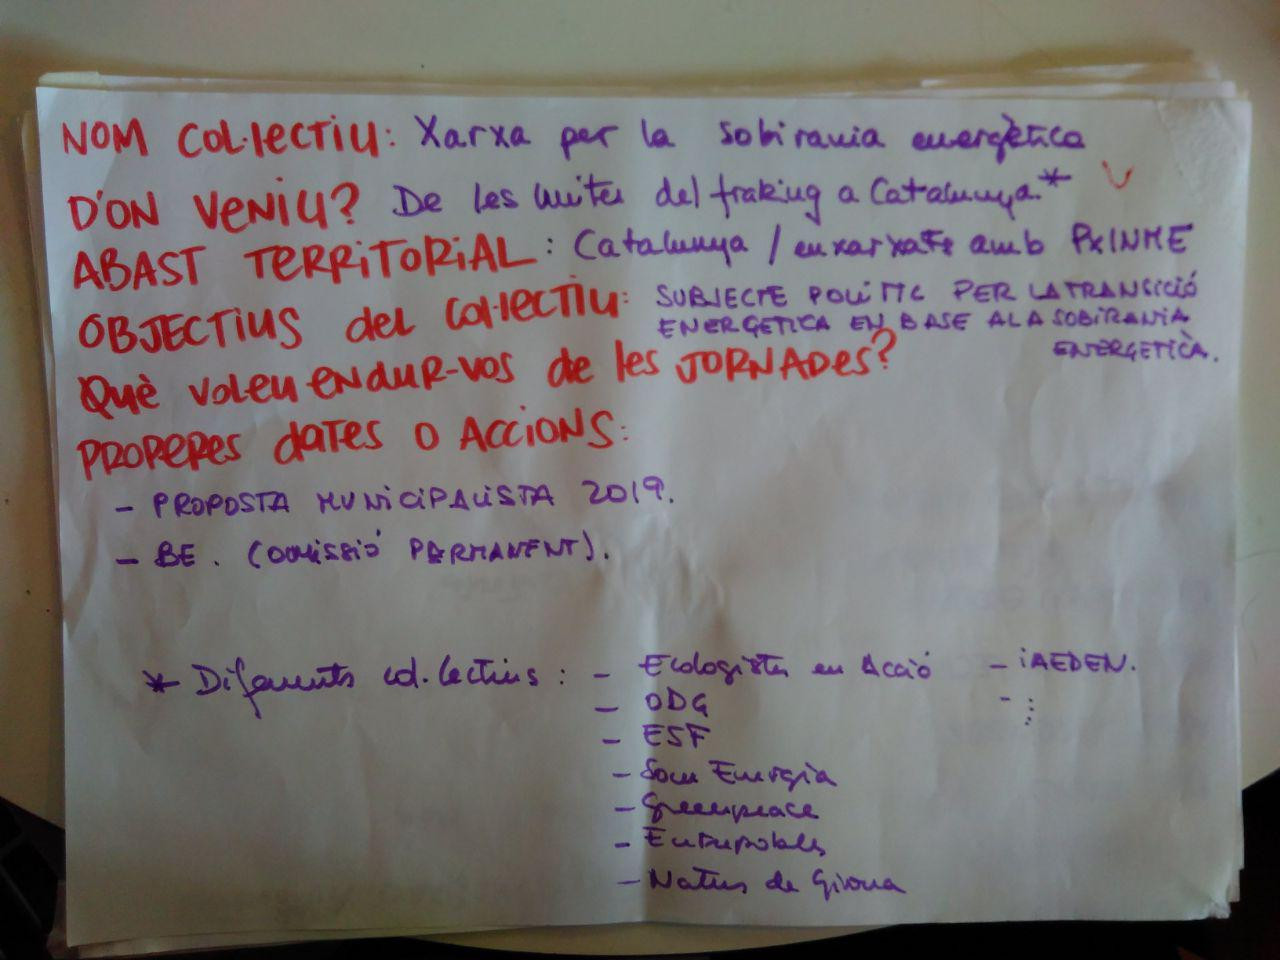 NOM COL·LECTIU: Xarxa per la sobirania energètica
D'ON VENIU? De les lluites del fraking a Catalunya.*
ABAST TERRITORIAL: Catalunya / enxarxats amb PxINME
OBJECTIUS del COL·LECTIU: SUBJECTE POLÍTIC PER LA TRANSICIÓ
ENERGETICA EN BASE A LA SOBIRANIA
ENERGETICÀ.
Què voleu endur-vos de les JORNADES?
PROPERES dates o ACCIONS:
- PROPOSTA MUNICIPALISTA 2019.
- BE. (COMISSIÓ PERMANENT).
* Diferents col·lectius: - Ecologistes en Acció - iAEDEN.
- ODG - ...
- ESF
- Som Energia
- Greenpeace
- Entrepobles
- Natus de Girona